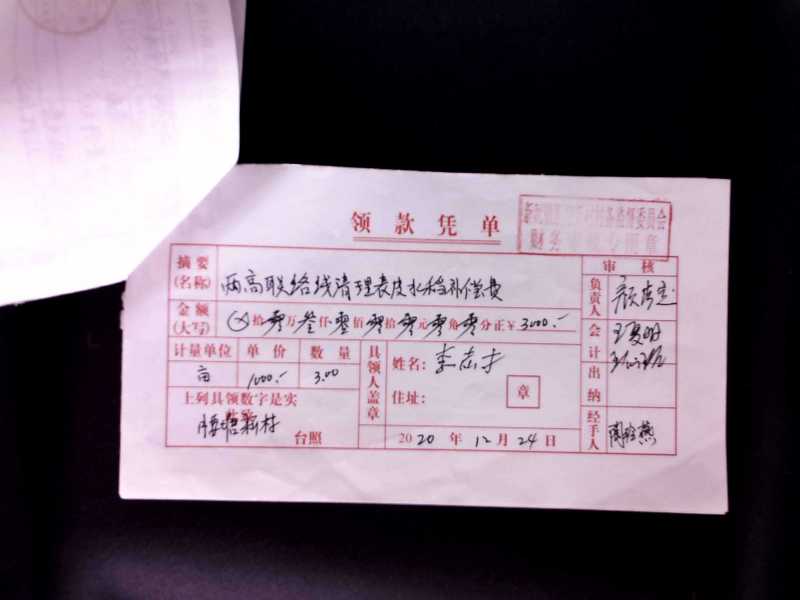 领款凭单
财务 专用章
摘要(名称) 两高联络线清理表皮水稻补偿费
审核
金额(大写) ⊗拾零万叁仟零佰零拾零元零角零分正¥3000.-
负责人
计量单位 单价 数量
亩 1000.- 3.00
具领人盖章
姓名：李志才
住址：
章
会计
出纳
上列具领数字是实
新村
台照
2020年12月24日
经手人